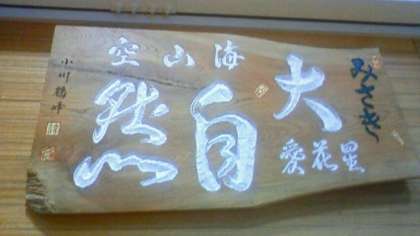 みさき
大自然
海山空
星花愛
小川鶴峰